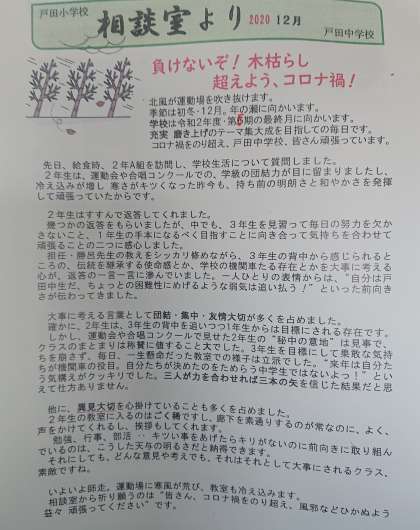 戸田小学校
相談室より
2020 12月
戸田中学校
負けないぞ！木枯らし
超えよう、コロナ禍！
北風が運動場を吹き抜けます。
季節は初冬・12月。年の瀬に向かいます。
学校は令和2年度・第Ⅱ期の最終月に向かいます。
充実 磨き上げのテーマ集大成を目指しての毎日です。
コロナ禍をのり超え、戸田中学校、皆さん頑張っています。
先日、給食時、２年A組を訪問し、学校生活について質問しました。
２年生は、運動会や合唱コンクールでの、学級の団結力が目に留まりましたし、
冷え込みが増し、寒さがキツくなった昨今も、持ち前の明朗さと和やかさを発揮
して頑張っていたからです。
２年生はすすんで返答してくれました。
幾つかの返答をもらいましたが、中でも、３年生を見習って毎日の努力を欠か
さないこと、１年生の手本になるべく目指すことに向き合って気持ちを合わせて
頑張ることの二つに感心しました。
担任・勝呂先生の教えをシッカリ修めながら、３年生の背中から感じられると
ころの、伝統を継承する使命感とか、学校の機関車たる存在とかを大事に考える
心が、返答の一言一言に滲んでいました。一人ひとりの表情からは、“自分は戸
田中生だ、ちょっとの困難性にめげるような弱気は追い払う！”といった前向き
さが伝わってきました。
大事に考える言葉として団結・集中・友情大切が多くを占めました。
確かに、2年生は、3年生の背中を追いつつ1年生からは目標にされる存在です。
しかし、運動会や合唱コンクールで見せた2年生の“秘中の意地”は見事で、
クラスのまとまりは称賛に値すること太でした。3年生を目標にして果敢な気持
ちを崩さず、毎日、一生懸命だった教室での様子は立派でした。“来年は自分た
ちが機関車の役目。自分たちが決めたのをためらう中学生ではないよっ！”とい
う気構えがクッキリでした。三人が力を合わせれば三本の矢を信じた結果だと思
えて仕方ありません。
他に、異見大切を心掛けていることも多くを占めました。
２年生の教室に入るのはごく稀ですし、廊下を素通りするのが常なのに、よく、
声をかけてくれるし、挨拶もしてくれます。
勉強、行事、部活 ‥ キツい事をあげたらキリがないのに前向きに取り組ん
でいるのは、こうした天与の明るさだと納得できます。
それにしても、どんな意見や考えでも、それはそれとして大事にされるクラス、
素敵ですね。
いよいよ師走。運動場に寒風が荒び、教室も冷え込みます。
相談室から祈り願うのは“皆さん、コロナ禍をのり超え、風邪などひかぬよう
益々 頑張ってください”です。